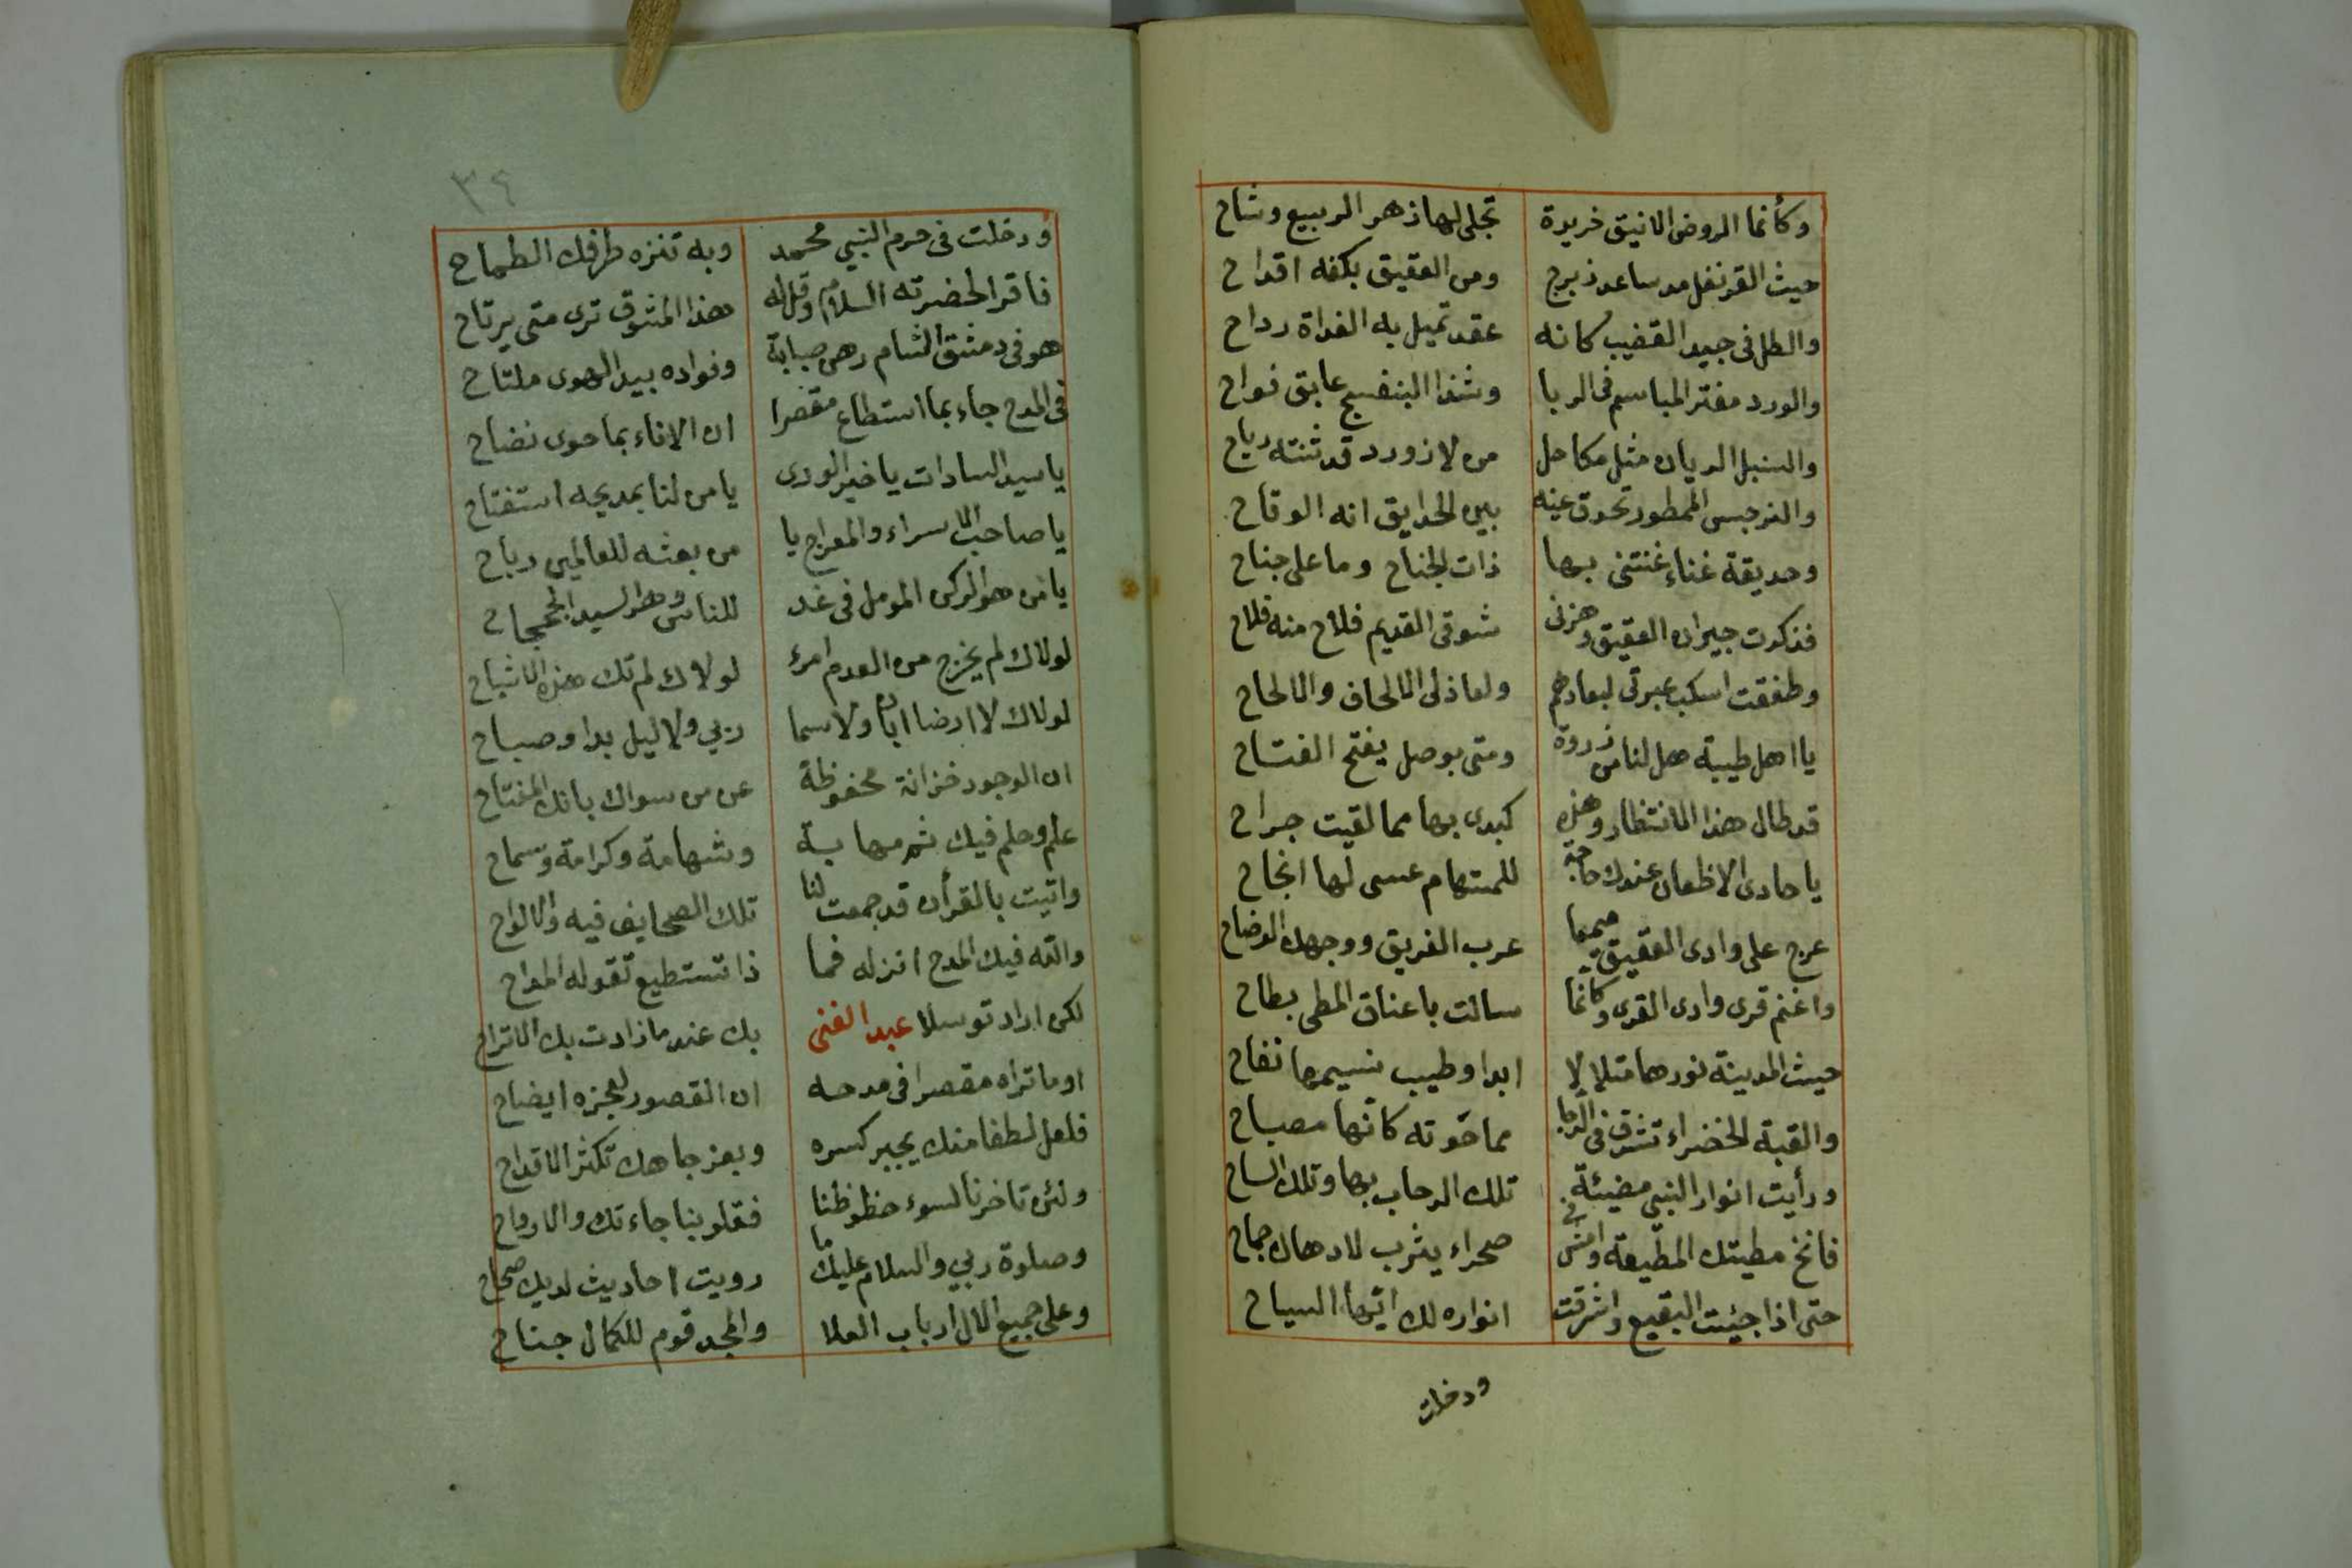 وكأنما الروض الانيق خريدة تجلى لها زهر الربيع وشاح
حيث القرنفل مد ساعد زبرج ومن العقيق بكفه اقداح
والطل فى جيد القضيب كانه عقد تميل به الغداة رداح
والورد مفتر المباسم فى الربا وشذا البنفسج عابق فواح
والسنبل الريان مثل مكاحل من لازورد قد ثنته رياح
والنرجس الممطور تحدق عينه بين الحدايق انه الوقاح
وحديقة غناء غنتنى بها ذات الجناح وما على جناح
فذكرت جيران العقيق وهزنى شوقى القديم فلاح منه فلاح
وطفقت اسكب عبرتى لبعادهم ولعاذلى الالحاف والالحاح
يا اهل طيبة هل لنا من زورة ومتى بوصل يفتح الفتاح
قد طال هذا الانتظار وهذه كبدى بها مما لقيت جراح
يا حادى الاظعان عندك حاجة للمستهام عسى لها انجاح
عرج على وادى العقيق ميمما عرب الفريق ووجهك الوضاح
واغنم قرى وادى القرى وكانما سالت باعناق المطى بطاح
حيث المدينة نورها متلالا ابدا وطيب نسيمها نفاح
والقبة الخضراء تشرق فى الدجا مما حوته كانها مصباح
ورأيت انوار النبي مضيئة تلك الرحاب بها وتلك الساح
فانخ مطيتك المطيعة وامش فى صحراء يثرب لادهاك جماح
حتى اذا جيئت البقيع واشرقت انواره لك ايها السياح
ودخلت
٣٤
ودخلت فى حرم النبي محمد وبه تنزه طرفك الطماح
فاقرا لحضرته السلام وقل له هذا المشوق ترى متى يرتاح
هو فى دمشق الشام رهن صبابة وفواده بيد الهوى ملتاح
فى المدح جاء بما استطاع مقصرا ان الاناء بما حوى نضاح
يا سيد السادات يا خير الورى يا من لنا بمديحه استفتاح
يا صاحب الاسراء والمعراج يا من بعثه للعالمين رباح
يا من هو الركن المومل فى غد للناس وهو السيد الجحجاح
لولاك لم يخرج من العدم امرء لولاك لم تك هذه الاشباح
لولاك لا ارضا ابان ولا سما ربي ولا ليل بدا وصباح
ان الوجود خزانة محفوظة عن من سواك بانك المفتاح
علم وحلم فيك ثم مهابة وشهامة وكرامة وسماح
واتيت بالقرأن قد جمعت لنا تلك الصحايف فيه والالواح
والله فيك المدح انزله فما ذا تستطيع تقوله المداح
لكن اراد توسلا عبد الغنى بك عندما زادت بك الاتراح
اوما تراه مقصرا فى مدحه ان القصور لعجزه ايضاح
فلعل لطفا منك يجبر كسره وبعز جاهك تكثر الاقداح
ولئن تاخرنا لسوء حظوظنا فقلوبنا جاءتك والارواح
وصلوة ربي والسلام عليك ما رويت احاديث لديك صحاح
وعلى جميع الال ارباب العلا والمجد قوم للكمال جناح